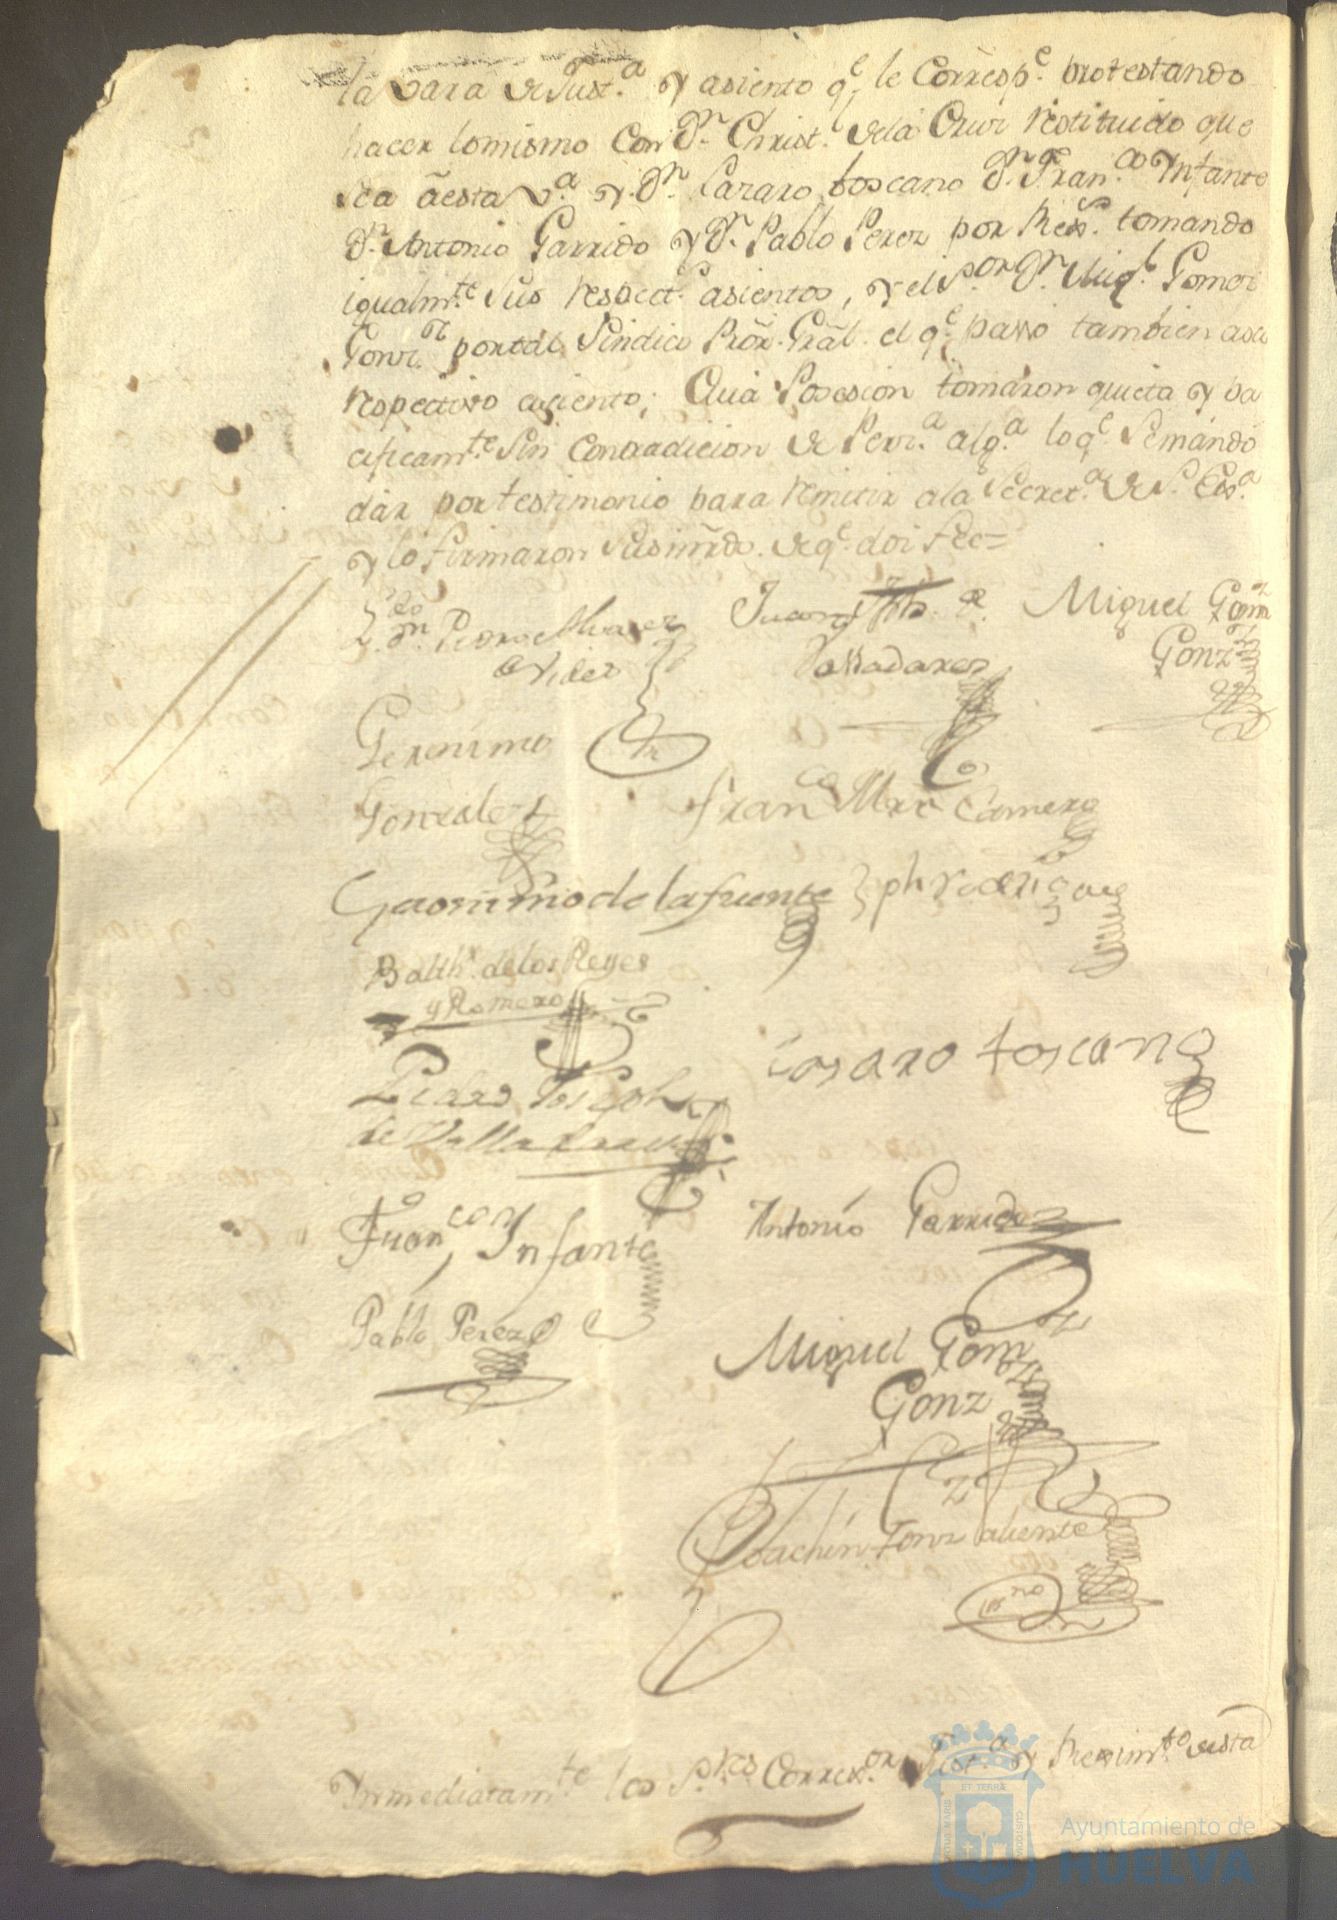 la vara de Just.ª y asiento q.e le Corresp.e protestando
hacer lo mismo Con D.n Christ.l de la Cruz restituido que
sea a esta V.ª y D.n Lazaro toscano D.n Fran.co Infante
D.n Antonio Garrido y D.n Pablo Perez por Rex.s tomando
igualm.te Sus respect.s asientos, y el S.or D.n Mig.l Gomez
Gonz.z por tal Sindico Pror. Gral. el q.e passo tambien a su
respectivo asiento; Cuia Posesion tomaron quieta y pa
cificam.te Sin Contradicion de Perz.ª alg.ª lo q.e Se mando
dar por testimonio para remitir a la Secret.ª de S. Ex.ª
y lo firmaron Sus mrds. de q.e doi Fee=
L.do D.n Pedro Alvarez
Juan Jph. de
Valladares
Miguel Gomz
Gonz.z
Geronimo
Gonzalez
Fran.co Mrn Camero
Geronimo de la fuente
Jph rodrigue
Balth.r de los Reyes
y Romero
Lazaro toscano
Pedro Joseph
de Valladares
Fran.co Infante
Antonio Garrido
Pablo Perez
Miguel Gomz
Gonz
Joachin Gonz aliente
ss.no
Ynmediatam.te los S.res Correx.or Just.ª y Reximt.o desta
ET TERRÆ
PORTUS MARIS
CUSTODIA
Ayuntamiento de
HUELVA